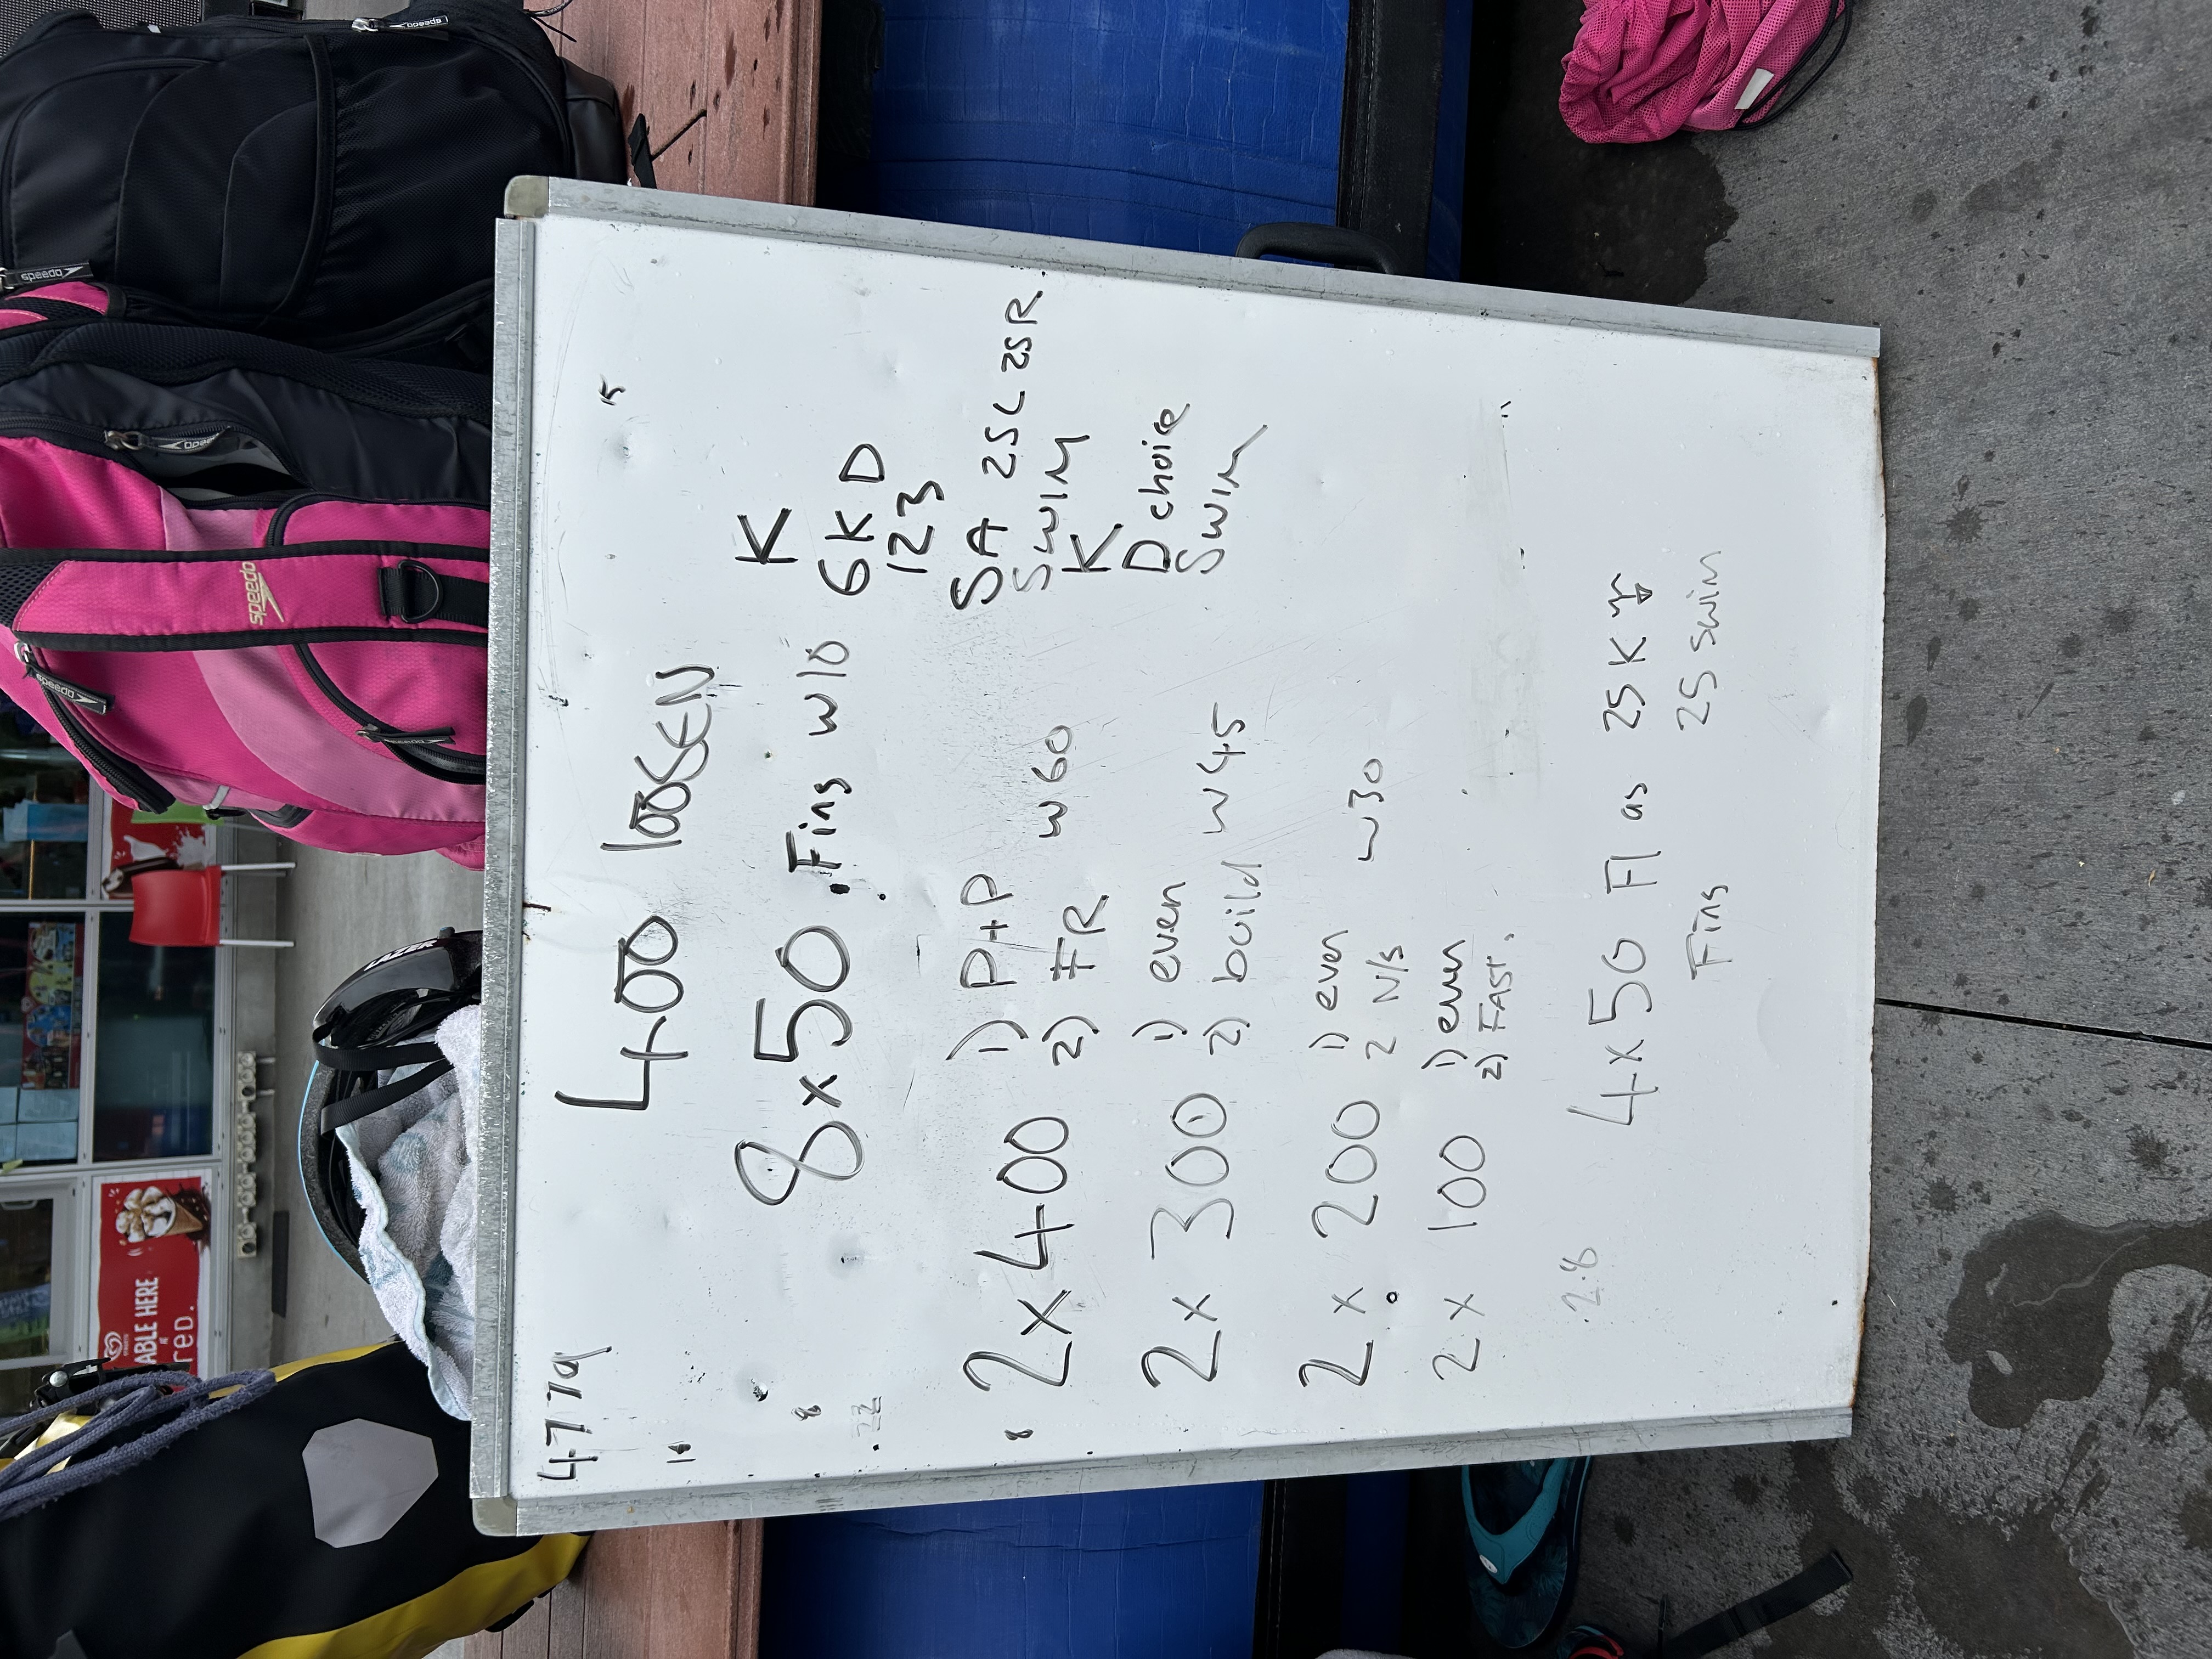 4779
400 loosen
K
8x50 Fins w10
6KD
123
SA 25L 25R
SWIM
K
D choice
SWIM
2x400 1) P+P
2) FR w60
2x300 1) even
2) build w45
2x200 1) even
2 N/S w30
2x100 1) even
2) FAST.
2.8
4x50 Fl as 25 K
25 swim
Fins
speedo
speedo
speedo
speedo
speedo
LAZER
ABLE HERE
red.